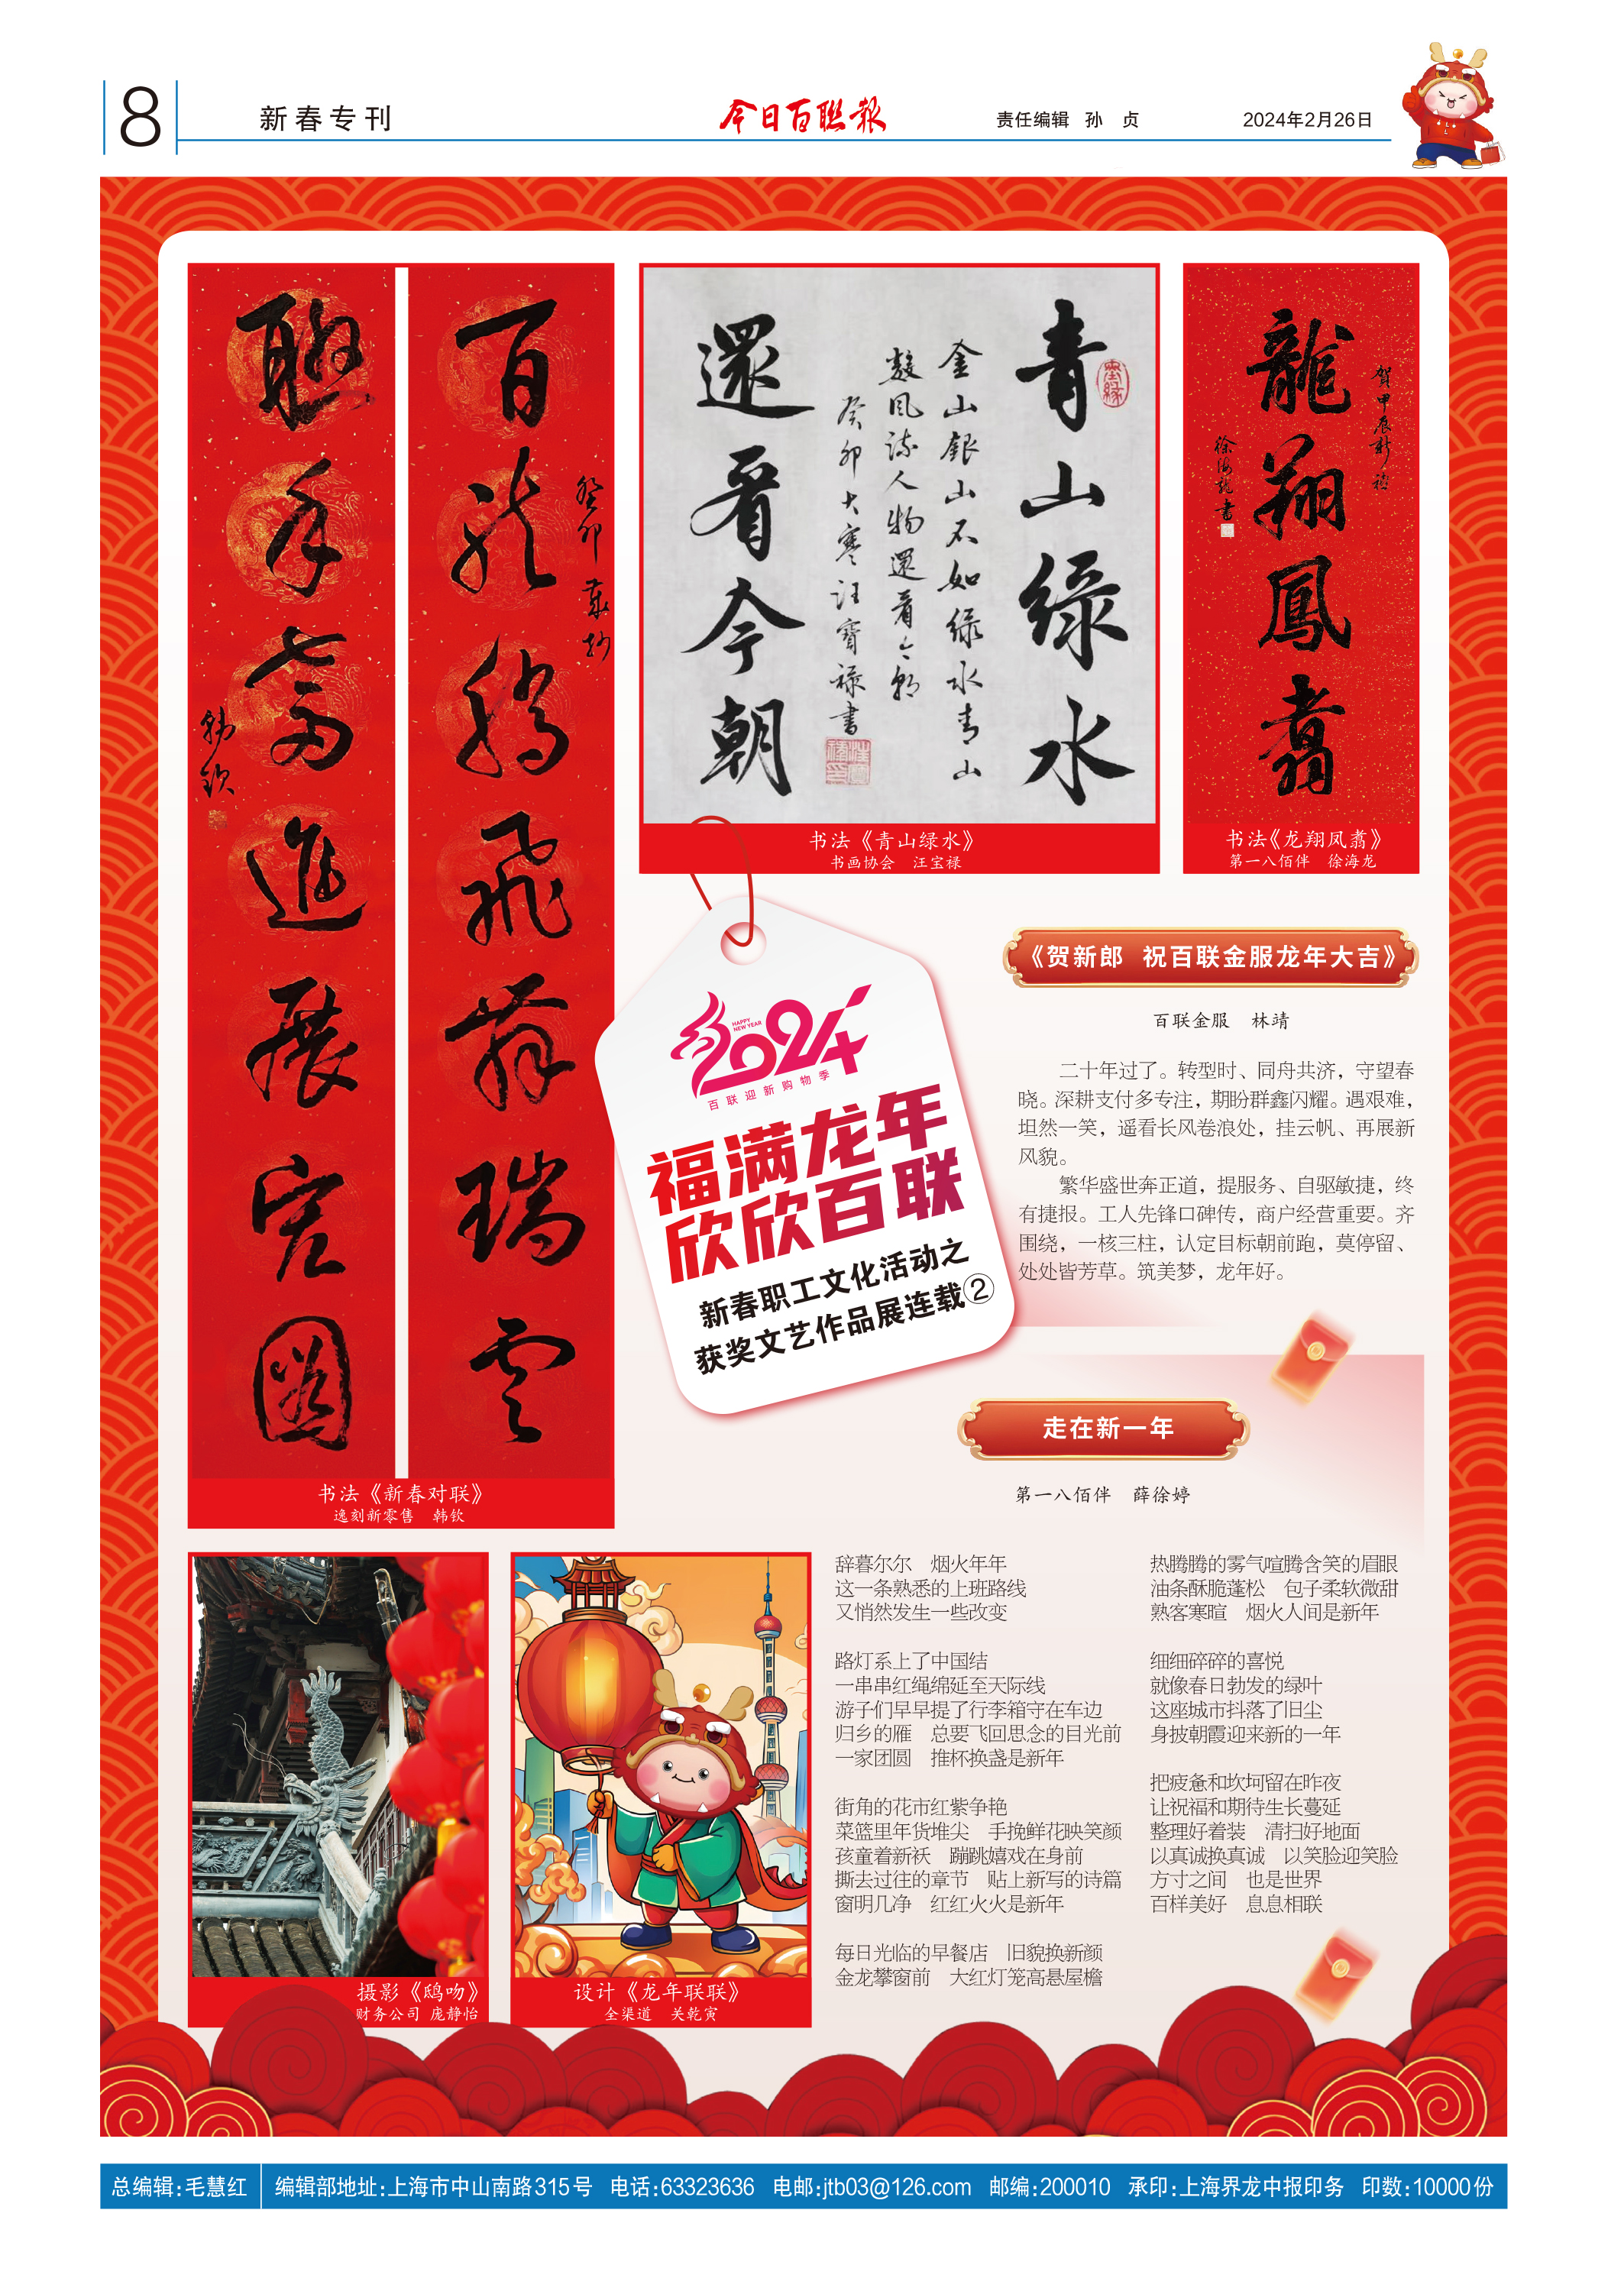 8
新春专刊
今日百联報
责任编辑 孙 贞
2024年2月26日
百龙腾飞舞瑞云
癸卯
聯手奮進展宏圖
韩钦
书法《新春对联》
逸刻新零售 韩钦
青山綠水
金山銀山不如绿水青山
数风流人物還看今朝
癸卯大寒汪寶禄書
還看今朝
书法《青山绿水》
书画协会 汪宝禄
賀甲辰新禧
龍翔鳳翥
徐海龍書
书法《龙翔凤翥》
第一八佰伴 徐海龙
HAPPY
NEW YEAR
2024
百联迎新购物季
福满龙年
欣欣百联
新春职工文化活动之
获奖文艺作品展连载②
《贺新郎 祝百联金服龙年大吉》
百联金服 林靖
二十年过了。转型时、同舟共济，守望春
晓。深耕支付多专注，期盼群鑫闪耀。遇艰难，
坦然一笑，遥看长风卷浪处，挂云帆、再展新
风貌。
繁华盛世奔正道，提服务、自驱敏捷，终
有捷报。工人先锋口碑传，商户经营重要。齐
围绕，一核三柱，认定目标朝前跑，莫停留、
处处皆芳草。筑美梦，龙年好。
走在新一年
第一八佰伴 薛徐婷
辞暮尔尔 烟火年年
这一条熟悉的上班路线
又悄然发生一些改变
路灯系上了中国结
一串串红绳绵延至天际线
游子们早早提了行李箱守在车边
归乡的雁 总要飞回思念的目光前
一家团圆 推杯换盏是新年
街角的花市红紫争艳
菜篮里年货堆尖 手挽鲜花映笑颜
孩童着新袄 蹦跳嬉戏在身前
撕去过往的章节 贴上新写的诗篇
窗明几净 红红火火是新年
每日光临的早餐店 旧貌换新颜
金龙攀窗前 大红灯笼高悬屋檐
热腾腾的雾气喧腾含笑的眉眼
油条酥脆蓬松 包子柔软微甜
熟客寒暄 烟火人间是新年
细细碎碎的喜悦
就像春日勃发的绿叶
这座城市抖落了旧尘
身披朝霞迎来新的一年
把疲惫和坎坷留在昨夜
让祝福和期待生长蔓延
整理好着装 清扫好地面
以真诚换真诚 以笑脸迎笑脸
方寸之间 也是世界
百样美好 息息相联
摄影《鸱吻》
财务公司 庞静怡
设计《龙年联联》
全渠道 关乾寅
总编辑:毛慧红 编辑部地址:上海市中山南路315号 电话:63323636 电邮:jtb03@126.com 邮编:200010 承印:上海界龙中报印务 印数:10000份